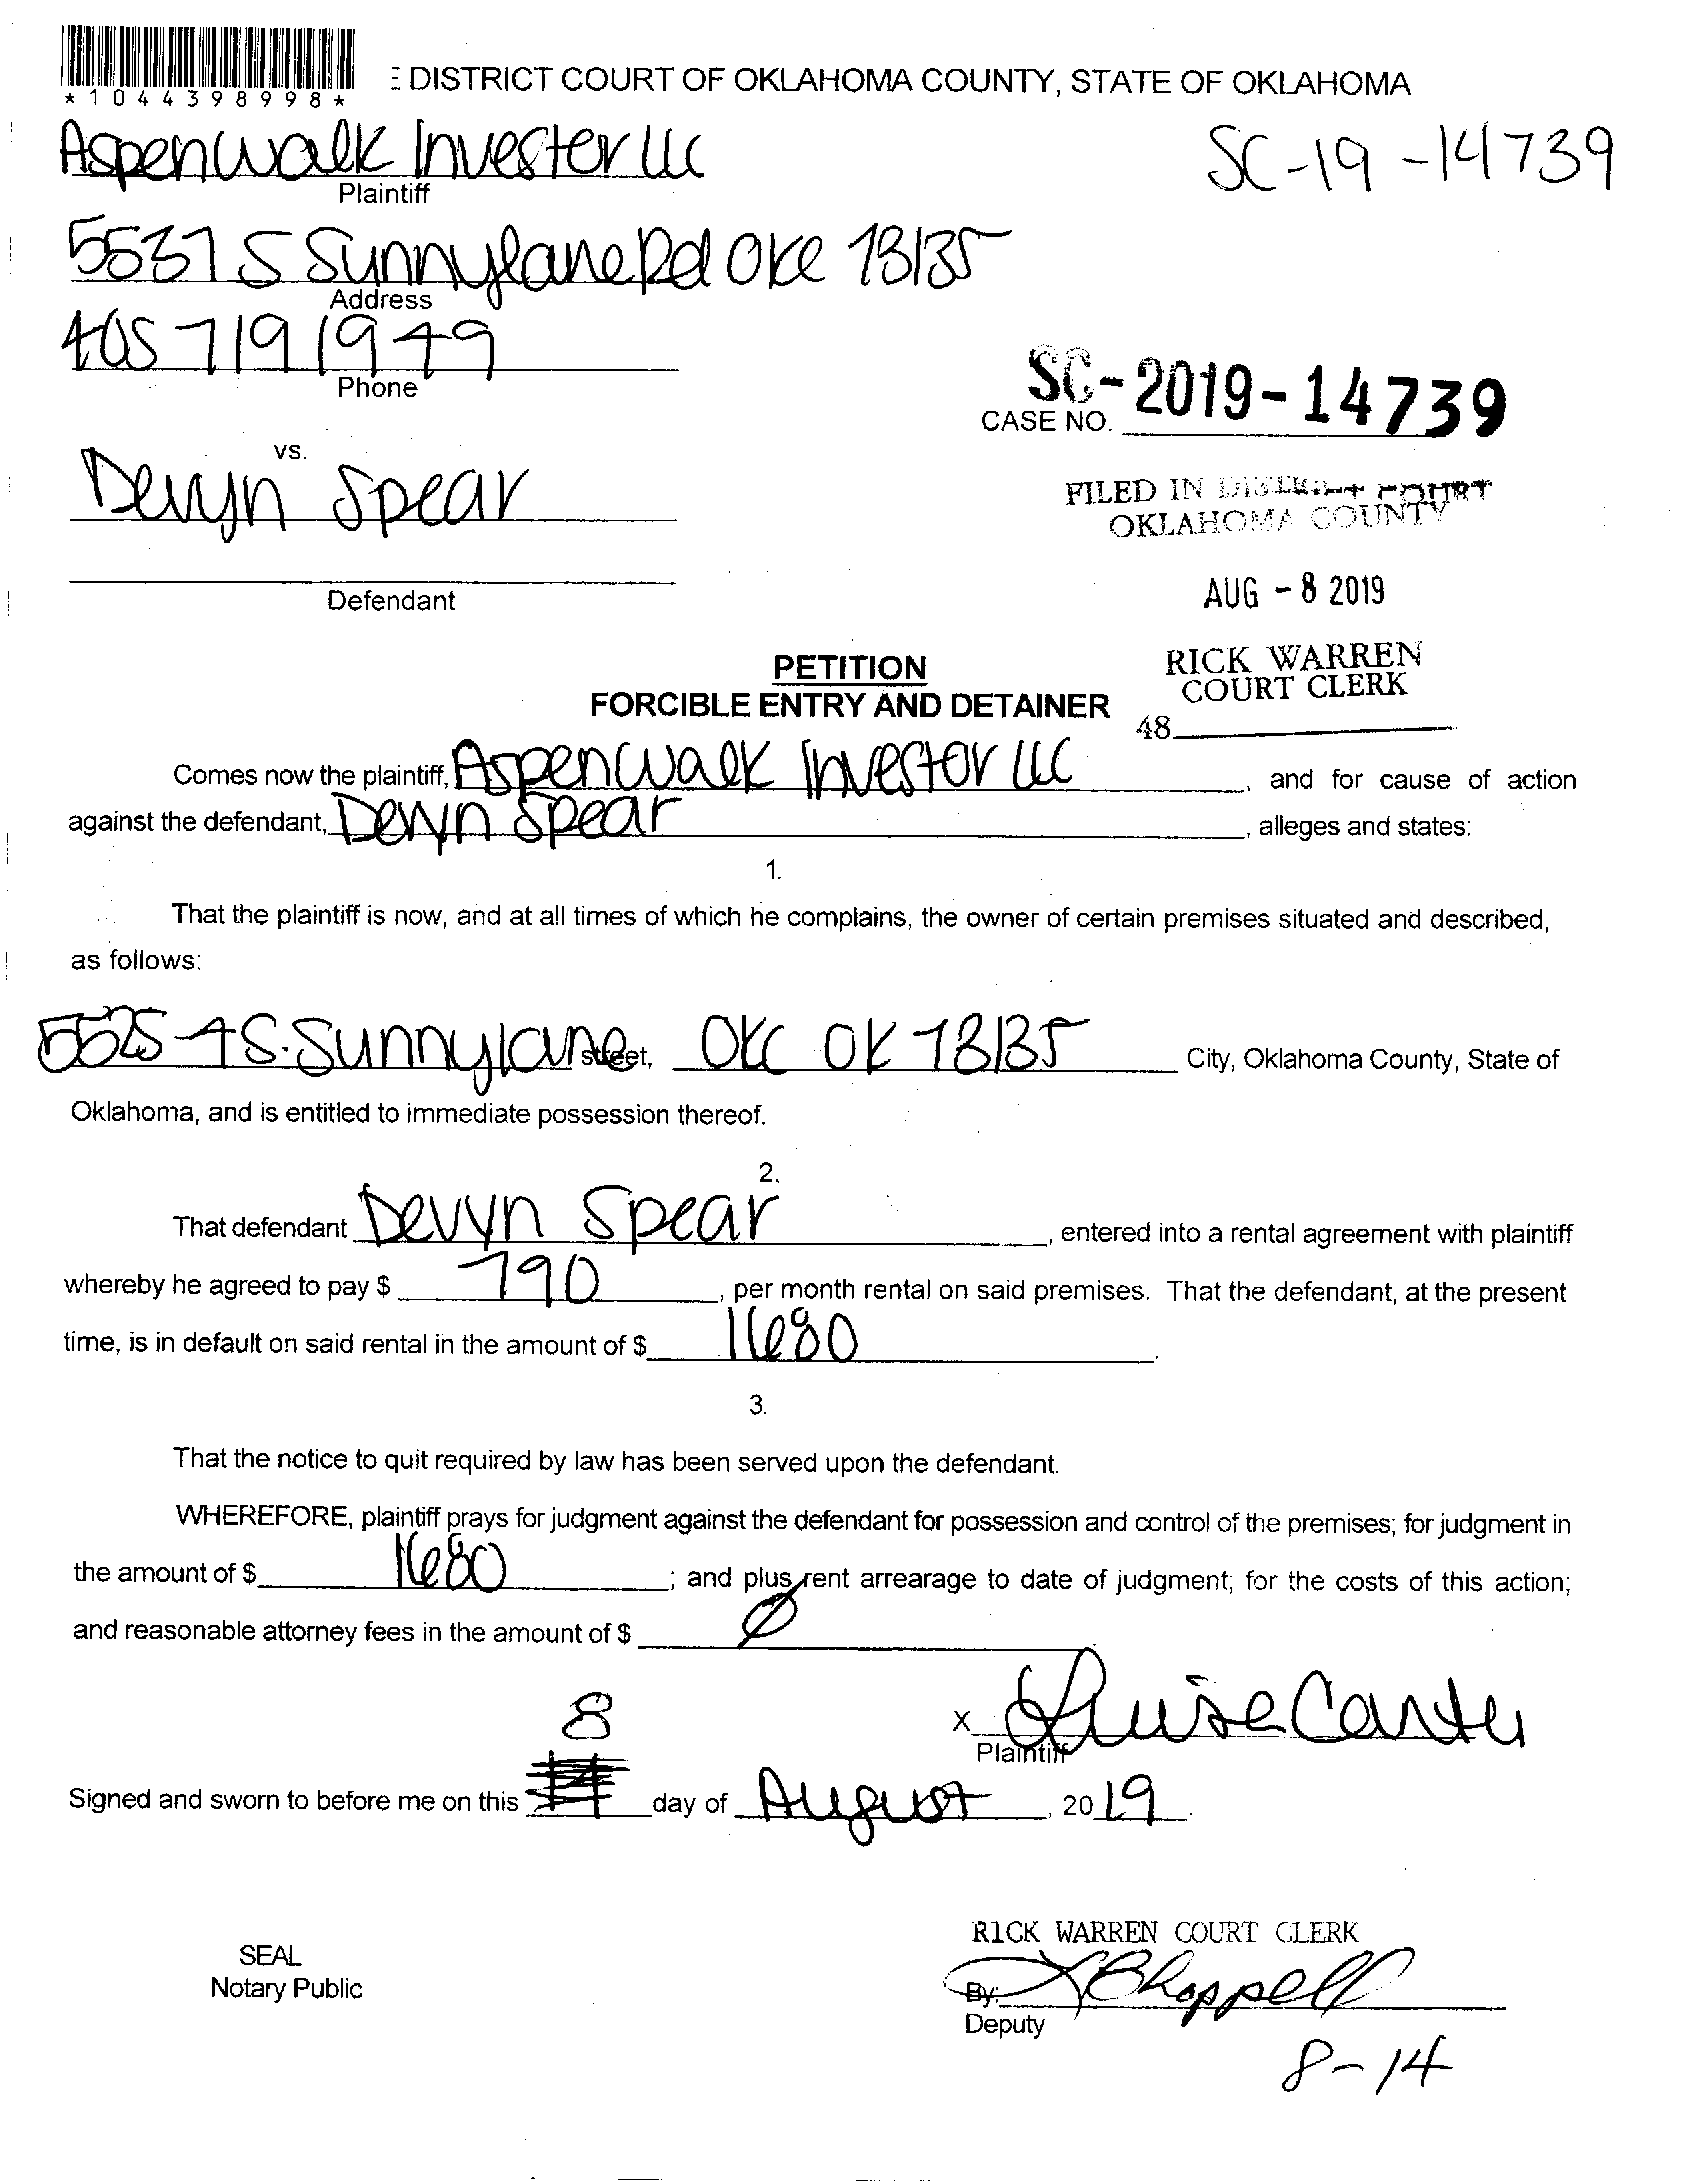 *1044398998*
E DISTRICT COURT OF OKLAHOMA COUNTY, STATE OF OKLAHOMA
Aspenwalk Investor LLC
SC-19-14739
Plaintiff
5537 S Sunnylane Rd OKC 73135
Address
405 719 1949
Phone
SC-2019-14739
CASE NO.
vs.
Devyn Spear
FILED IN DISTRICT COURT
OKLAHOMA COUNTY
Defendant
AUG - 8 2019
PETITION
RICK WARREN
FORCIBLE ENTRY AND DETAINER
COURT CLERK
48
Comes now the plaintiff, Aspenwalk Investor LLC, and for cause of action
against the defendant, Devyn Spear, alleges and states:
1.
That the plaintiff is now, and at all times of which he complains, the owner of certain premises situated and described,
as follows:
5525-4 S. Sunnylane street, OKC OK 73135 City, Oklahoma County, State of
Oklahoma, and is entitled to immediate possession thereof.
2.
That defendant Devyn Spear, entered into a rental agreement with plaintiff
whereby he agreed to pay $ 790, per month rental on said premises. That the defendant, at the present
time, is in default on said rental in the amount of $ 1680.
3.
That the notice to quit required by law has been served upon the defendant.
WHEREFORE, plaintiff prays for judgment against the defendant for possession and control of the premises; for judgment in
the amount of $ 1680; and plus rent arrearage to date of judgment; for the costs of this action;
and reasonable attorney fees in the amount of $ Ø
8
x Louise Carter
Plaintiff
Signed and sworn to before me on this day of August, 2019.
RICK WARREN COURT CLERK
SEAL
Notary Public
By: Chappell
Deputy
8-14